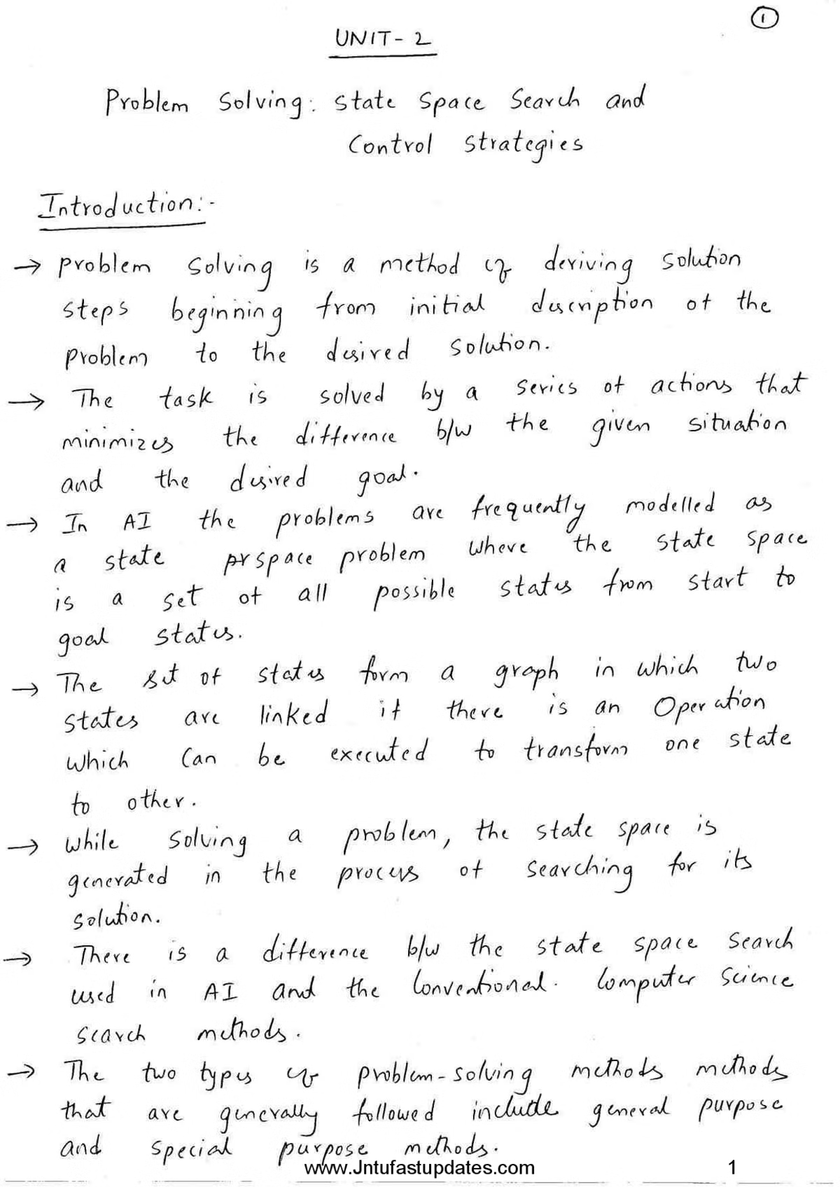 1
UNIT - 2
Problem Solving: State Space Search and
Control Strategies
Introduction:-
→ Problem Solving is a method of deriving solution
steps beginning from initial description of the
problem to the desired solution.
→ The task is solved by a series of actions that
minimizes the difference b/w the given situation
and the desired goal.
→ In AI the problems are frequently modelled as
a state prspace problem where the state space
is a set of all possible states from start to
goal states.
→ The set of states form a graph in which two
states are linked if there is an Operation
which can be executed to transform one state
to other.
→ While Solving a problem, the state space is
generated in the process of searching for its
solution.
→ There is a difference b/w the state space search
used in AI and the Conventional. Computer Science
search methods.
→ The two types of problem-solving methods methods
that are generally followed include general purpose
and special purpose methods.
www.Jntufastupdates.com 1